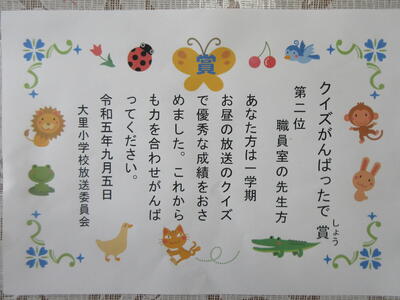 賞
クイズがんばったで賞
しょう
第二位
職員室の先生方
あなた方は一学期
お昼の放送のクイズ
で優秀な成績をおさ
めました。これから
も力を合わせがんば
ってください。
令和五年九月五日
大里小学校放送委員会